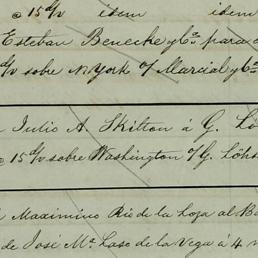 @ 15 d/v idem idem
Esteban Benecke y Ca. para
d/v sobre N. York o/ Marcial y Ca.
Julio A. Skilton á G. Löh
@ 15 d/v sobre Washington o/ G. Löhs
Maximino Rio de la Loza al Ba
de José Ma. Laso de la Vega á 4